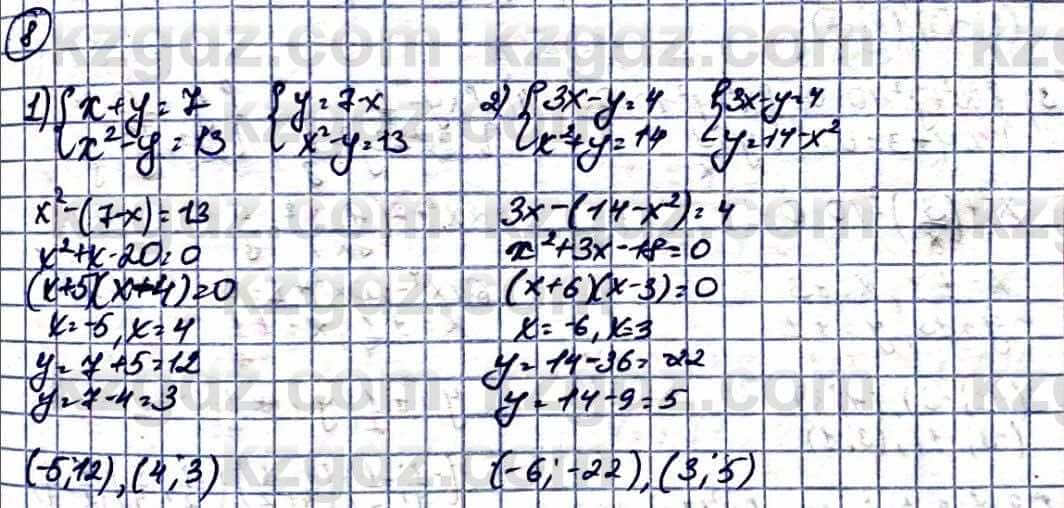 8
1) { x + y = 7
x² - y = 13
{ y = 7 - x
x² - y = 13
x² - (7 - x) = 13
x² + x - 20 = 0
(x+5)(x+4) = 0
x = -5, x = 4
y = 7 + 5 = 12
y = 7 - 4 = 3
(-5; 12), (4; 3)
2) { 3x - y = 4
x² + y = 14
{ 3x - y = 4
y = 14 - x²
3x - (14 - x²) = 4
x² + 3x - 18 = 0
(x+6)(x-3) = 0
x = -6, x = 3
y = 14 - 36 = -22
y = 14 - 9 = 5
(-6; -22), (3; 5)
kzgdz.com